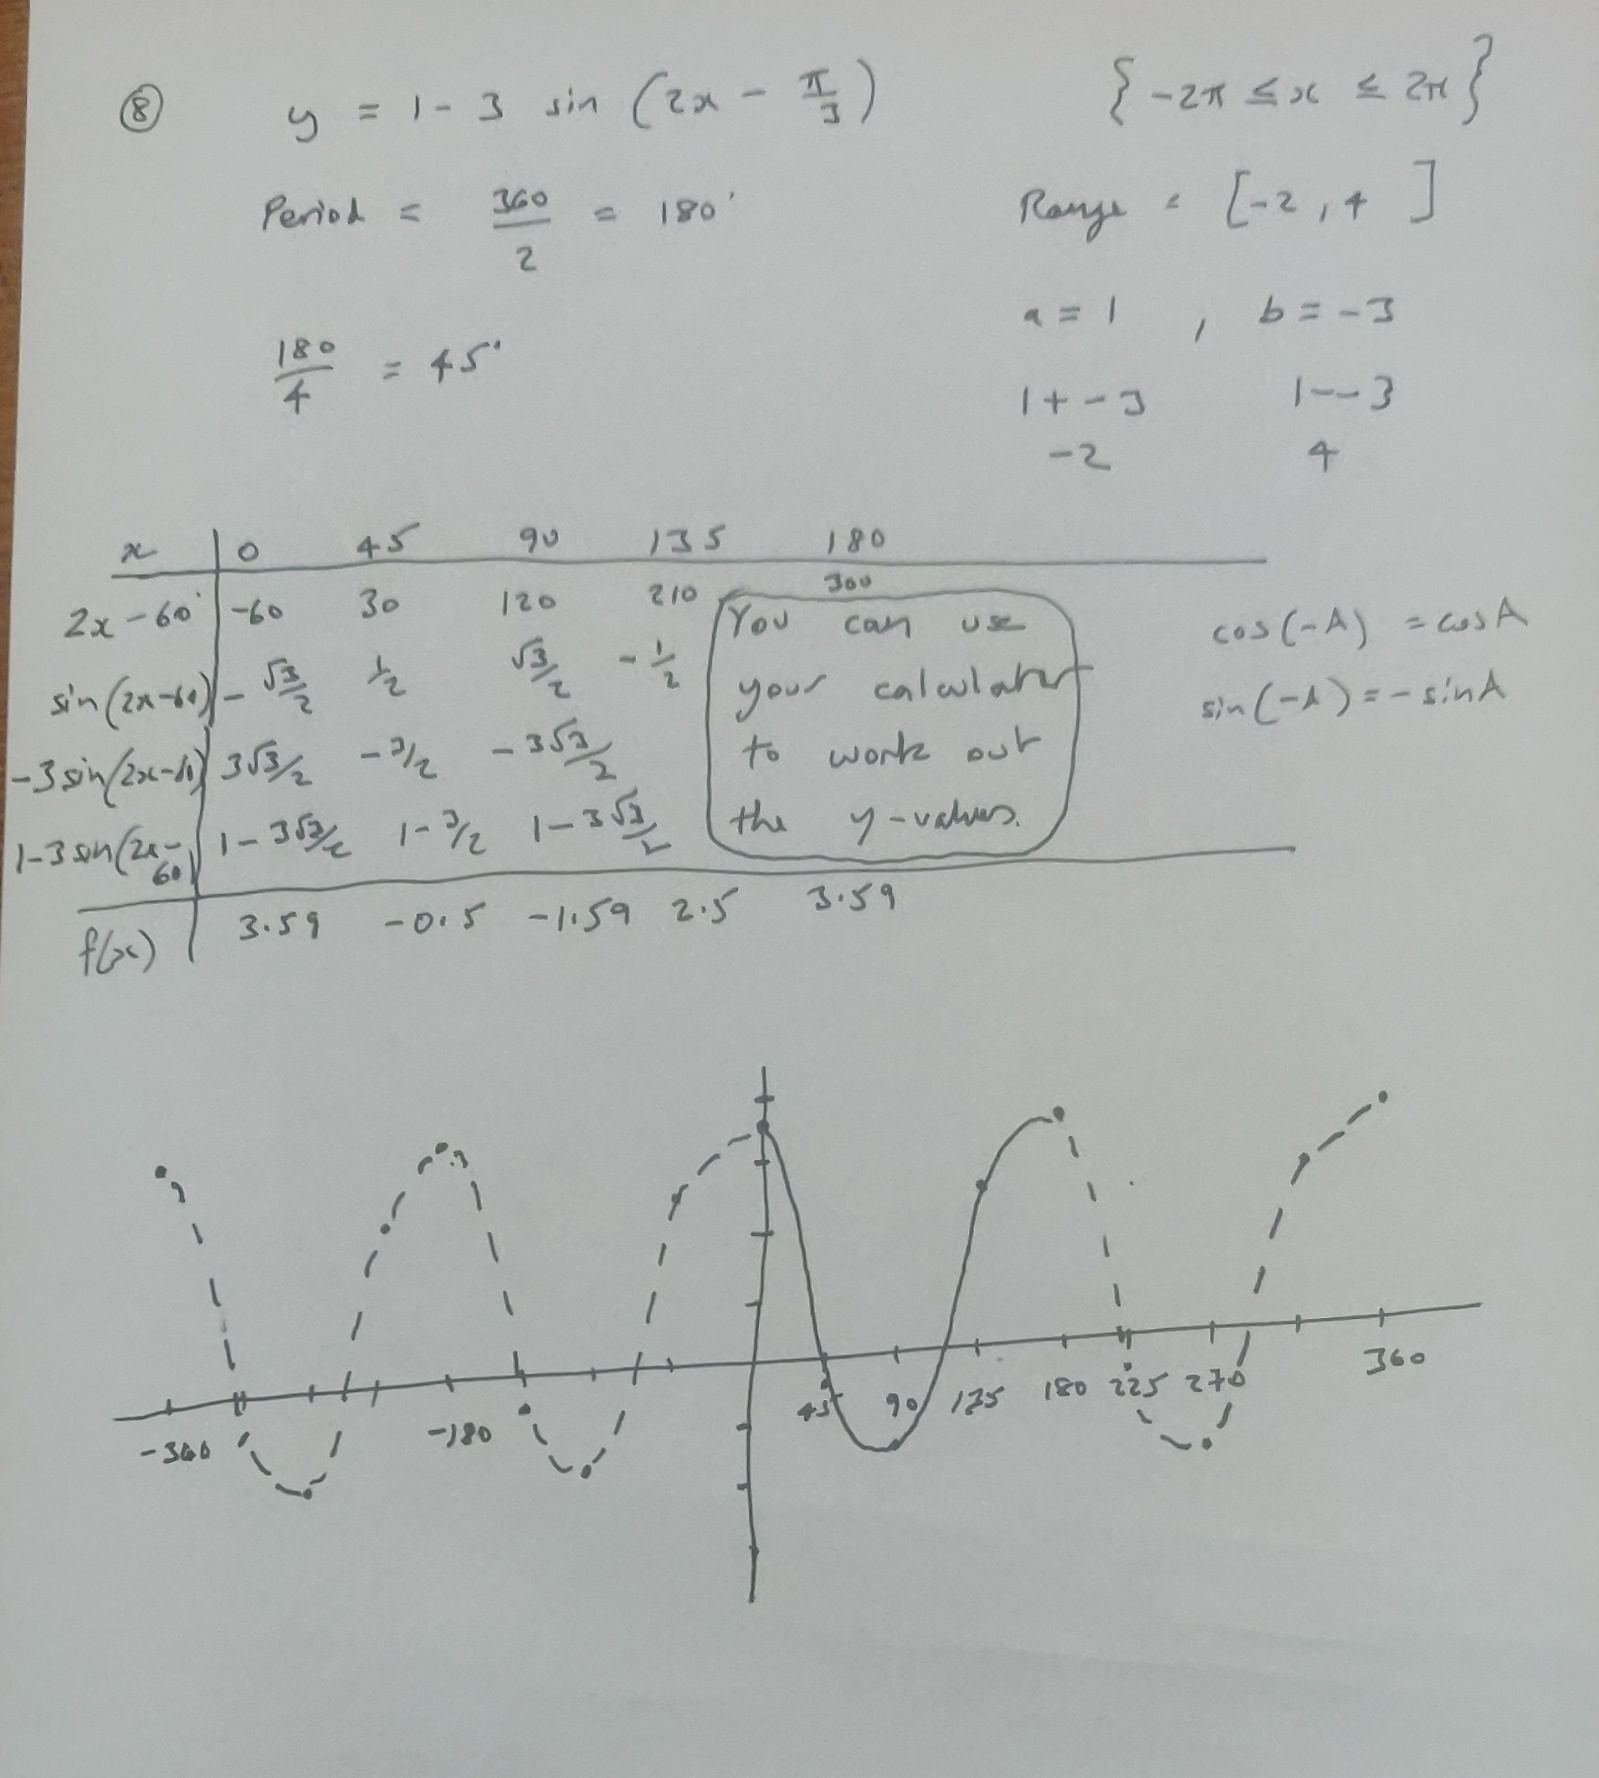 ⑧ y = 1 - 3 sin (2x - π/3) { -2π ≤ x ≤ 2π }
Period = 360/2 = 180° Range = [-2, 4]
a = 1 , b = -3
180/4 = 45°
1 + -3 1 - -3
-2 4
x 0 45 90 135 180
2x - 60° -60 30 120 210 300
sin(2x-60) -√3/2 1/2 √3/2 -1/2
-3 sin(2x-60) 3√3/2 -3/2 -3√3/2
1-3 sin(2x-60) 1-3√3/2 1-3/2 1-3√3/2
You can use
your calculator
to work out
the y-values.
cos(-A) = cosA
sin(-A) = -sinA
f(x) 3.59 -0.5 -1.59 2.5 3.59
-360 -180 45 90 135 180 225 270 360